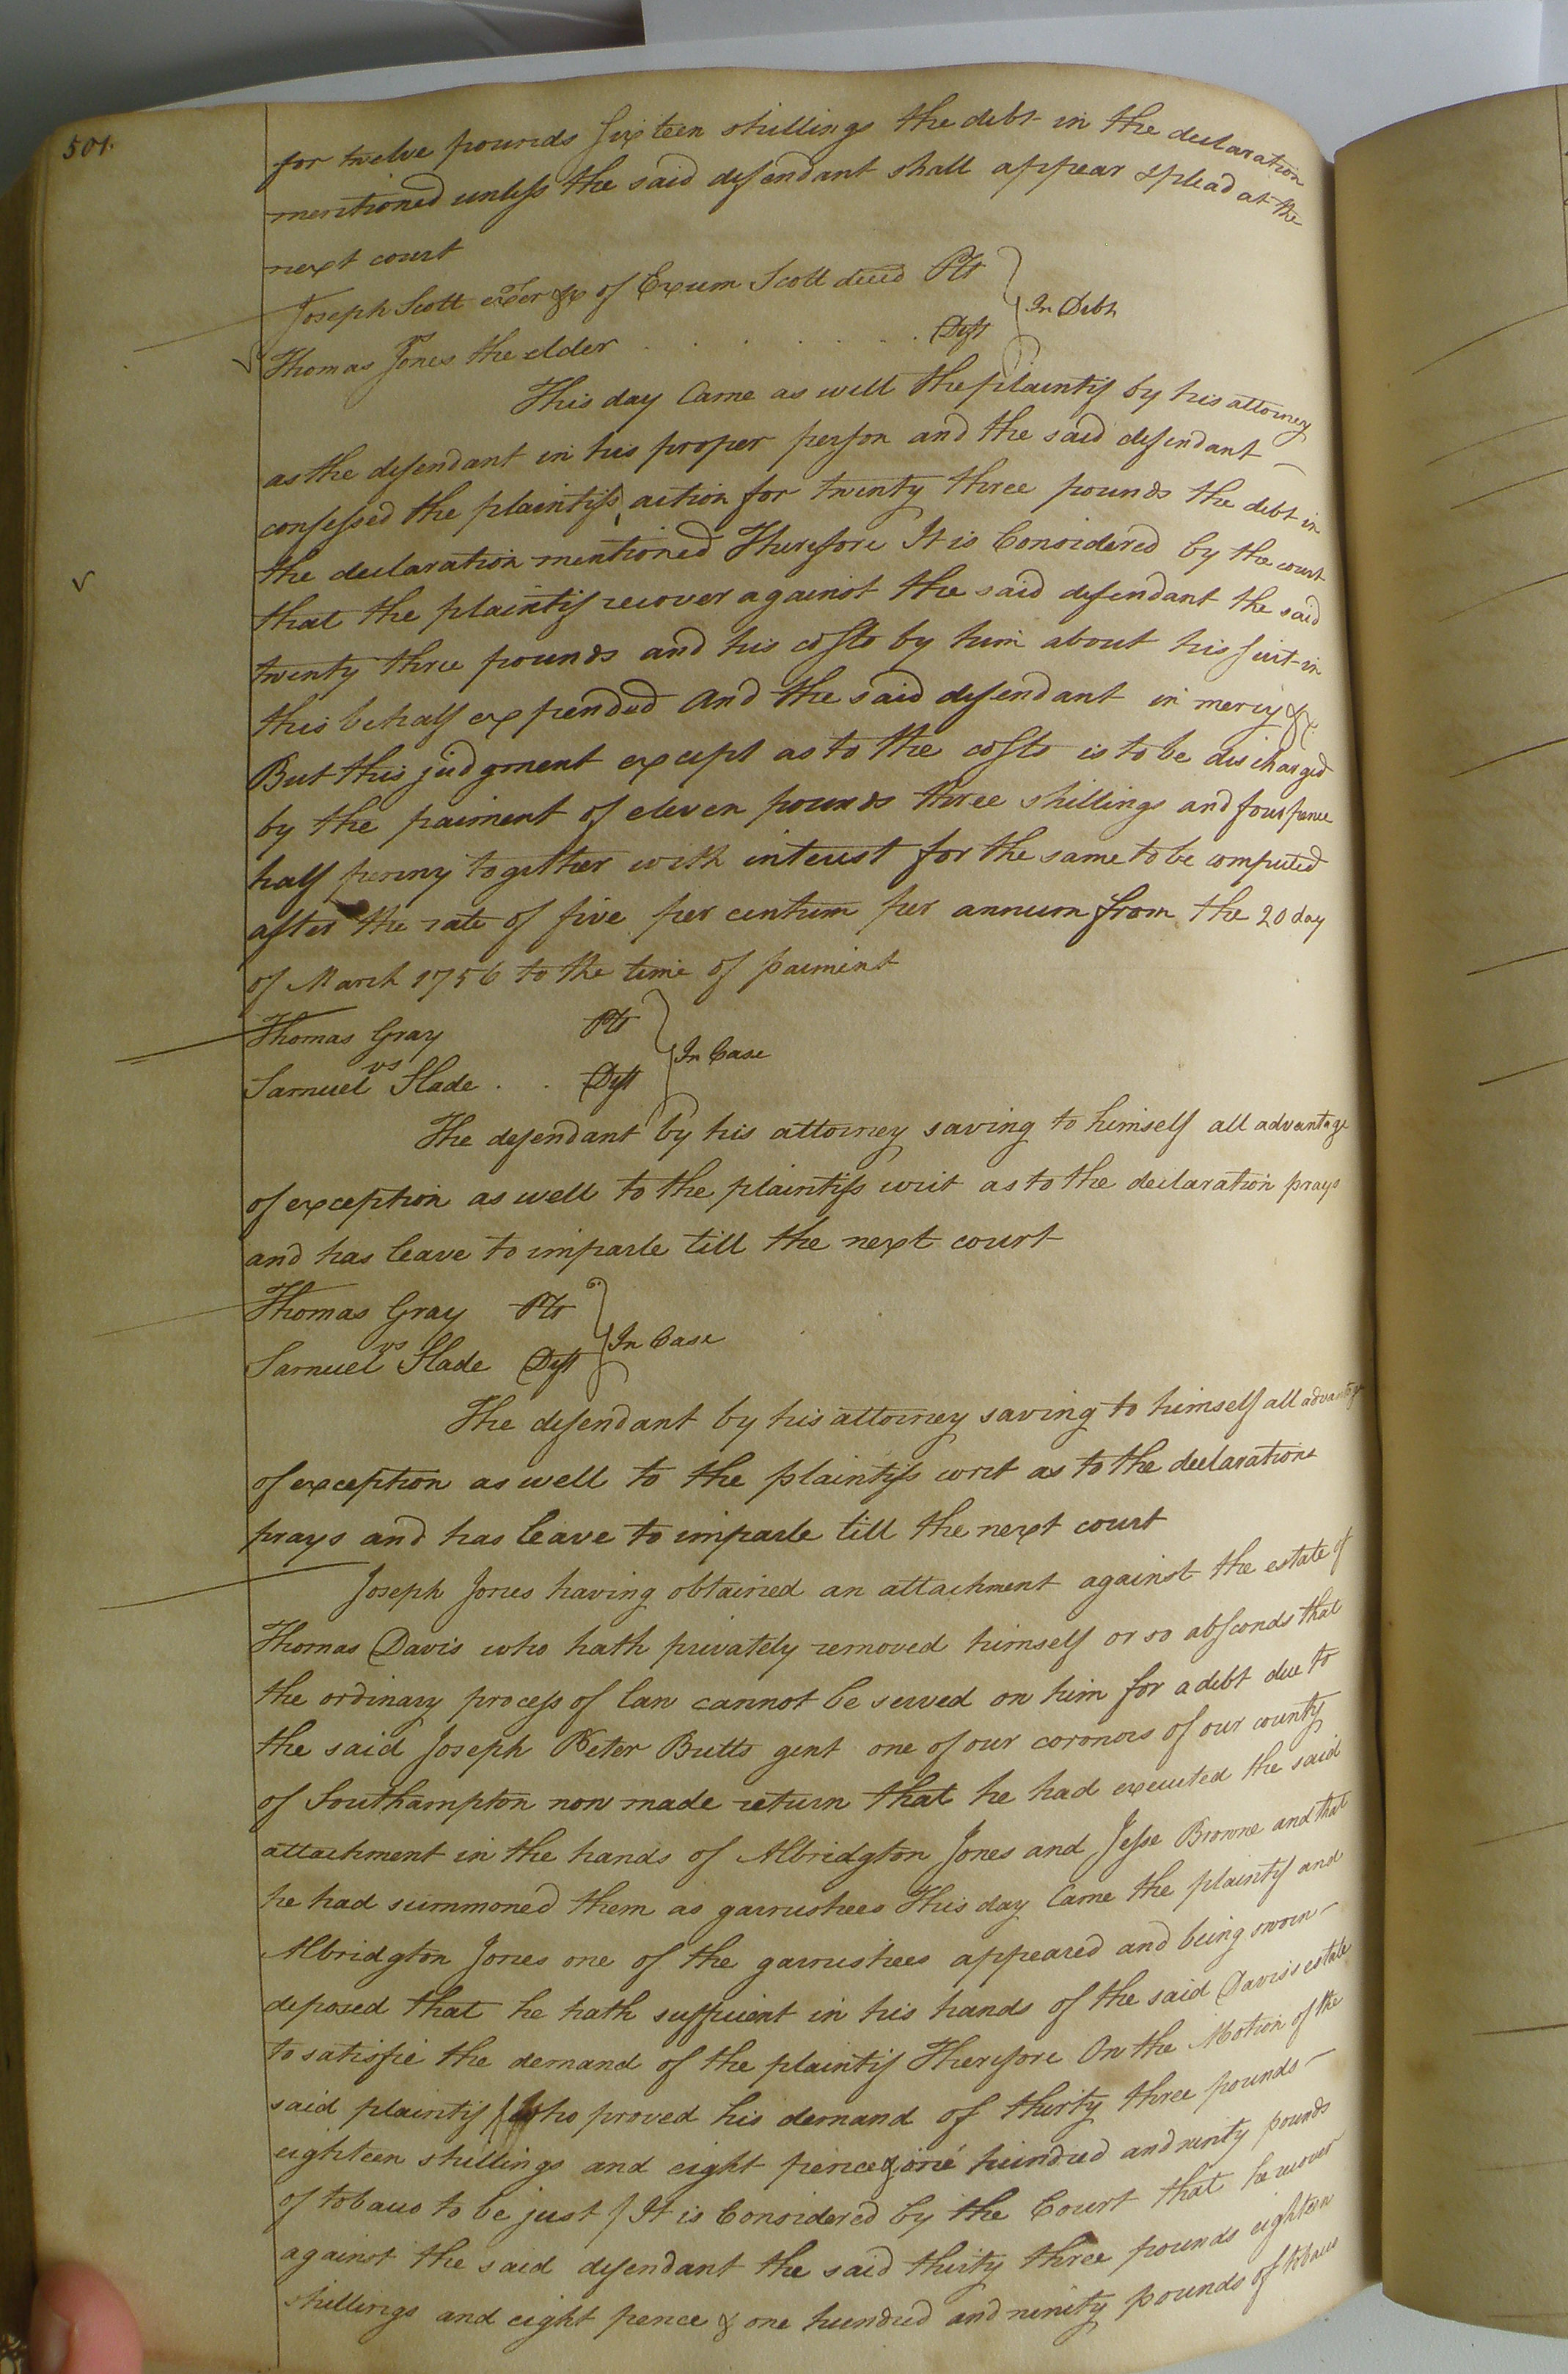 501.
for twelve pounds sixteen shillings the debt in the declaration
mentioned unless the said defendant shall appear & plead at the
next court
Joseph Scott exer &c of Exum Scott decd Plt
vs In Debt
Thomas Jones the elder . . . . . . . Deft
This day Came as well the plaintif by his attorney
as the defendant in his proper person and the said defendant
confessed the plaintifs action for twenty three pounds the debt in
the declaration mentioned Therefore It is Considered by the court
that the plaintif recover against the said defendant the said
twenty three pounds and his costs by him about his suit in
this behalf expended And the said defendant in mercy &c.
But this judgment except as to the costs is to be discharged
by the paiment of eleven pounds three shillings and four pence
half penny together with interest for the same to be computed
after the rate of five per centum per annum from the 20 day
of March 1756 to the time of paiment
Thomas Gray Plt
vs In Case
Samuel Slade . . Deft
The defendant by his attorney saving to himself all advantage
of exception as well to the plaintifs writ as to the declaration prays
and has leave to imparle till the next court
Thomas Gray Plt
vs In Case
Samuel Slade Deft
The defendant by his attorney saving to himself all advantage
of exception as well to the plaintifs writ as to the declaration
prays and has leave to imparle till the next court
Joseph Jones having obtained an attachment against the estate of
Thomas Davis who hath privately removed himself or so absconds that
the ordinary process of law cannot be served on him for a debt due to
the said Joseph Peter Butts gent one of our coronors of our county
of Southampton now made return that he had executed the said
attachment in the hands of Albridgton Jones and Jesse Browne and that
he had summoned them as garnishees This day Came the plaintif and
Albridgton Jones one of the garnishees appeared and being sworn
deposed that he hath suffuient in his hands of the said Davis's estate
to satisfie the demand of the plaintif Therefore On the Motion of the
said plaintif (who proved his demand of thirty three pounds
eighteen shillings and eight pence & one hundred and ninty pounds
of tobacco to be just) It is Considered by the Court that he recover
against the said defendant the said thirty three pounds eighteen
shillings and eight pence & one hundred and ninety pounds of tobacco